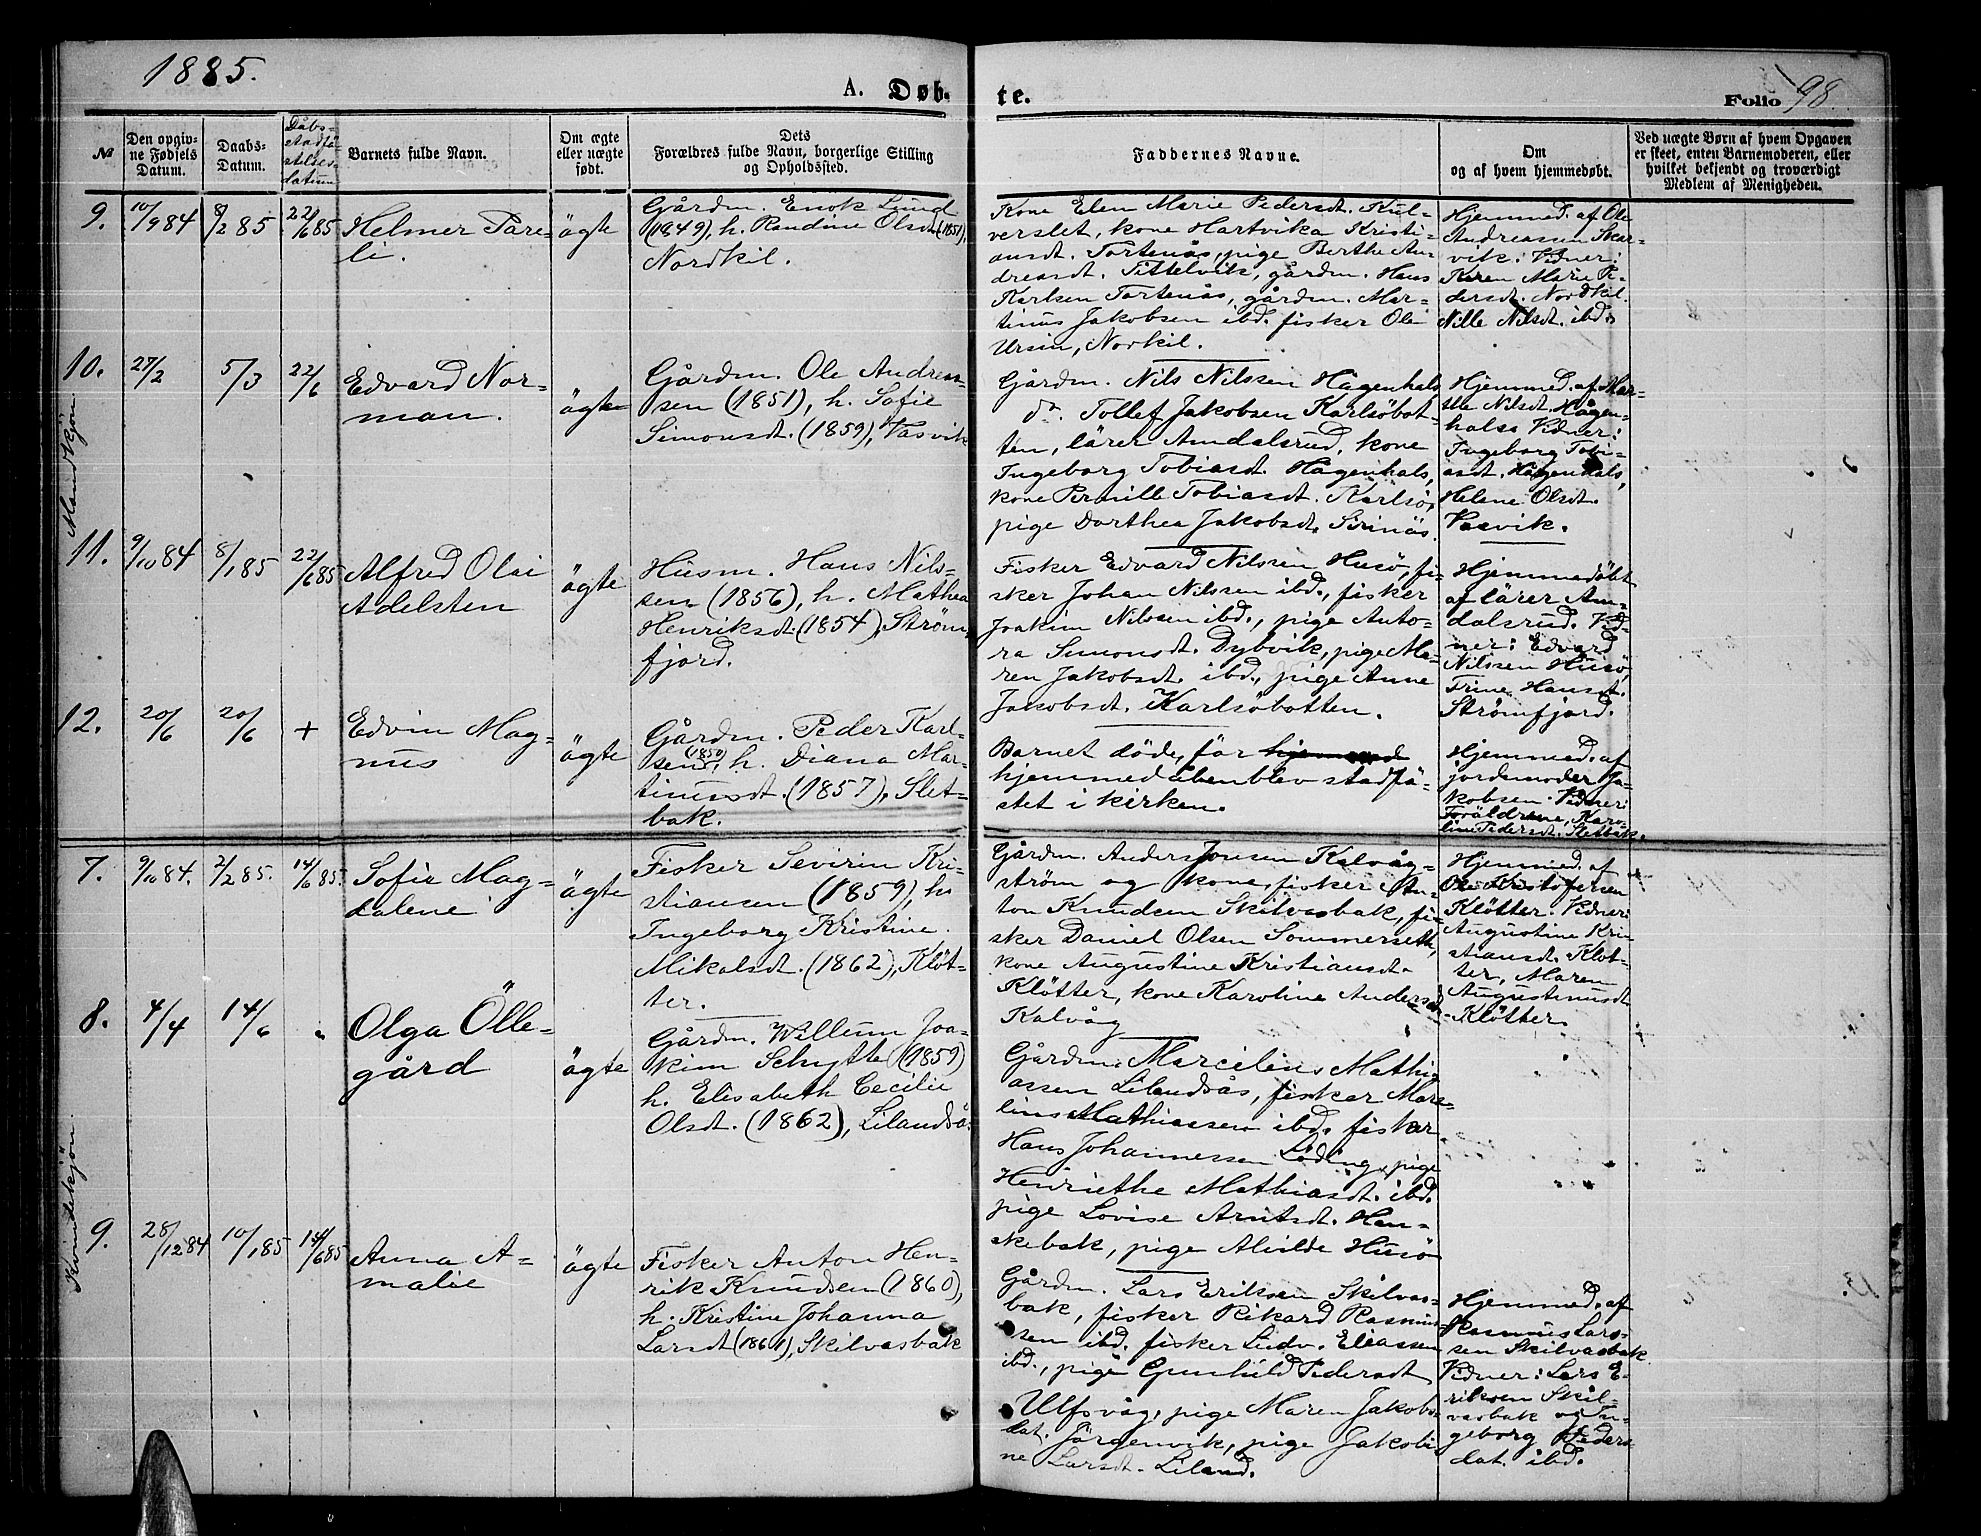 1885.
A. Døb-
te.
Folio 98.
№
Den opgiv-
ne Fødsels
Datum.
Daabs-
Datum.
Dåbs-
stadfä-
stelses-
datum
Barnets fulde Navn.
Om ægte
eller uægte
født.
Dets
Forældres fulde Navn, borgerlige Stilling
og Opholdssted.
Faddernes Navne.
Om
og af hvem hjemmedøbt.
Ved uægte Børn af hvem Opgaven
er skeet, enten Barnemoderen, eller
hvilket bekjendt og troværdigt
Medlem af Menigheden.
Mandkjøn
9.
10/9 84
8/2 85
22/6 85
Helmer Pare-
li.
ägte
Gårdm. Enok Ljungl
(1849), h. Randine Olsdt. (1851),
Nordkil.
Kone Elen Marie Pedersdt. Kul-
verslet, kone Hartvika Kristi-
ansdt. Tortenås, pige Berthe An-
dreasdt. Tittelvik, gårdm. Hans
Karlsen Tortenås, gårdm. Mar-
tinus Jakobsen ibd. fisker Ole
Ursin, Norkil.
Hjemmed. af Ole
Andreassen Skar-
vik. Vidner:
Karen Marie Pe-
dersdt. Nordkil.
Nille Nilsdt. ibd.
10.
27/2
5/3
22/6
Edvard Nor-
man.
ägte
Gårdm. Ole Andrea-
sen (1851), h. Sofie
Simonsdt. (1859), Vasvik
Gårdm. Nils Nilssen Hågenhals
do. Tollef Jakobsen Karlsöbot-
ten, lärer Amdalsrud, kone
Ingeborg Tobiasdt. Hågenhals,
kone Pernille Tobiasdt. Karlsö,
pige Dorthea Jakobsdt. Sirinäs.
Hjemmed. af Mar-
the Nilsdt. Hågen-
hals Vidner:
Ingeborg Tobi-
asdt. Hågenhals,
Helene Olsdt.
Vasvik.
11.
9/10 84
8/1 85
22/6 85
Alfred Olai
Adelsten
ägte
Husm. Hans Nils-
sen (1856), h. Mathea
Henriksdt. (1854), Strøm-
fjord.
Fisker Edvard Nilssen Husö, fi-
sker Johan Nilssen ibd., fisker
Joakim Nilssen ibd., pige Anto-
ra Simonsdt. Dybvik, pige Ma-
ren Jakobsdt. ibd., pige Anne
Jakobsdt. Karlsöbotten.
Hjemmedöbt
af lärer Am-
dalsrud. Vid-
ner: Edvard
Nilssen Husö,
Trine Hansdt.
Strömfjord.
12.
20/6
20/6
+
Edvin Mag-
nus
ägte
Gårdm. Peder Karl-
sen (1850), h. Diana Mar-
tinusdt. (1857), Slet-
bak.
Barnet döde, för hjemmed
hjemmedåben blev stadfä-
stet i kirken.
Hjemmed. af
jordemoder Ja-
kobsen. Vidner:
Foräldrene, Karo-
line Pedersdt. Sletbak.
Kvindekjøn
7.
9/10 84.
2/2 85.
14/6 85.
Sofie Mag-
dalene
ägte
Fisker Sevirin Kri-
stiansen (1859), h.
Ingeborg Kristine
Mikalsdt. (1862), Klöt-
ter.
Gårdm. Anders Jonsen Kalvåg-
ström og kone, fisker An-
ton Knudsen Skilvasbak, fi-
sker Daniel Olsen Sommerseth,
kone Augustine Kristiansdt.
Klötter, kone Karoline Andersdt.
Kalvåg
Hjemmed. af
Ole Kristofersen
Klötter. Vidner:
Augustine Kri-
stiansdt. Klöt-
ter, Maren
Augustinusdt
Klötter.
8.
4/4
14/6
"
Olga Ölle-
gård
ägte
Gårdm. Willum Joa-
kim Schytte (1859)
h. Elisabeth Cecilie
Olsdt. (1862), Lilandså.
Gårdm. Marcelius Mathi-
assen Lilandsås, fisker Mar-
lius Mathiassen ibd. fisker
Hans Johannessen Löding, pige
Henriethe Mathiasdt. ibd.
pige Lovise Arntsdt. Han-
skebak, pige Alvilde Husö
9.
28/12 84
10/1 85
14/6 85
Anna A-
malie
ägte
Fisker Anton Hen-
rik Knudsen (1860),
h. Kristine Johanna
Larsdt (1861), Skilvasbak
Gårdm. Lars Eriksen Skilvas-
bak, fisker Rikard Rasmus-
sen ibd. fisker Ludv. Eliassen
ibd., pige Gunhild Pedersdt
Ulfsvåg, pige Maren Jakobs-
dat. Jörgenvik, pige Jakobi-
ne Larsdt. Liland.
Hjemmed. af
Rasmus Lars-
sen Skilvasbak
Vidner: Lars E-
riksen Skil-
vasbak og In-
geborg Peders-
dat. ibd.